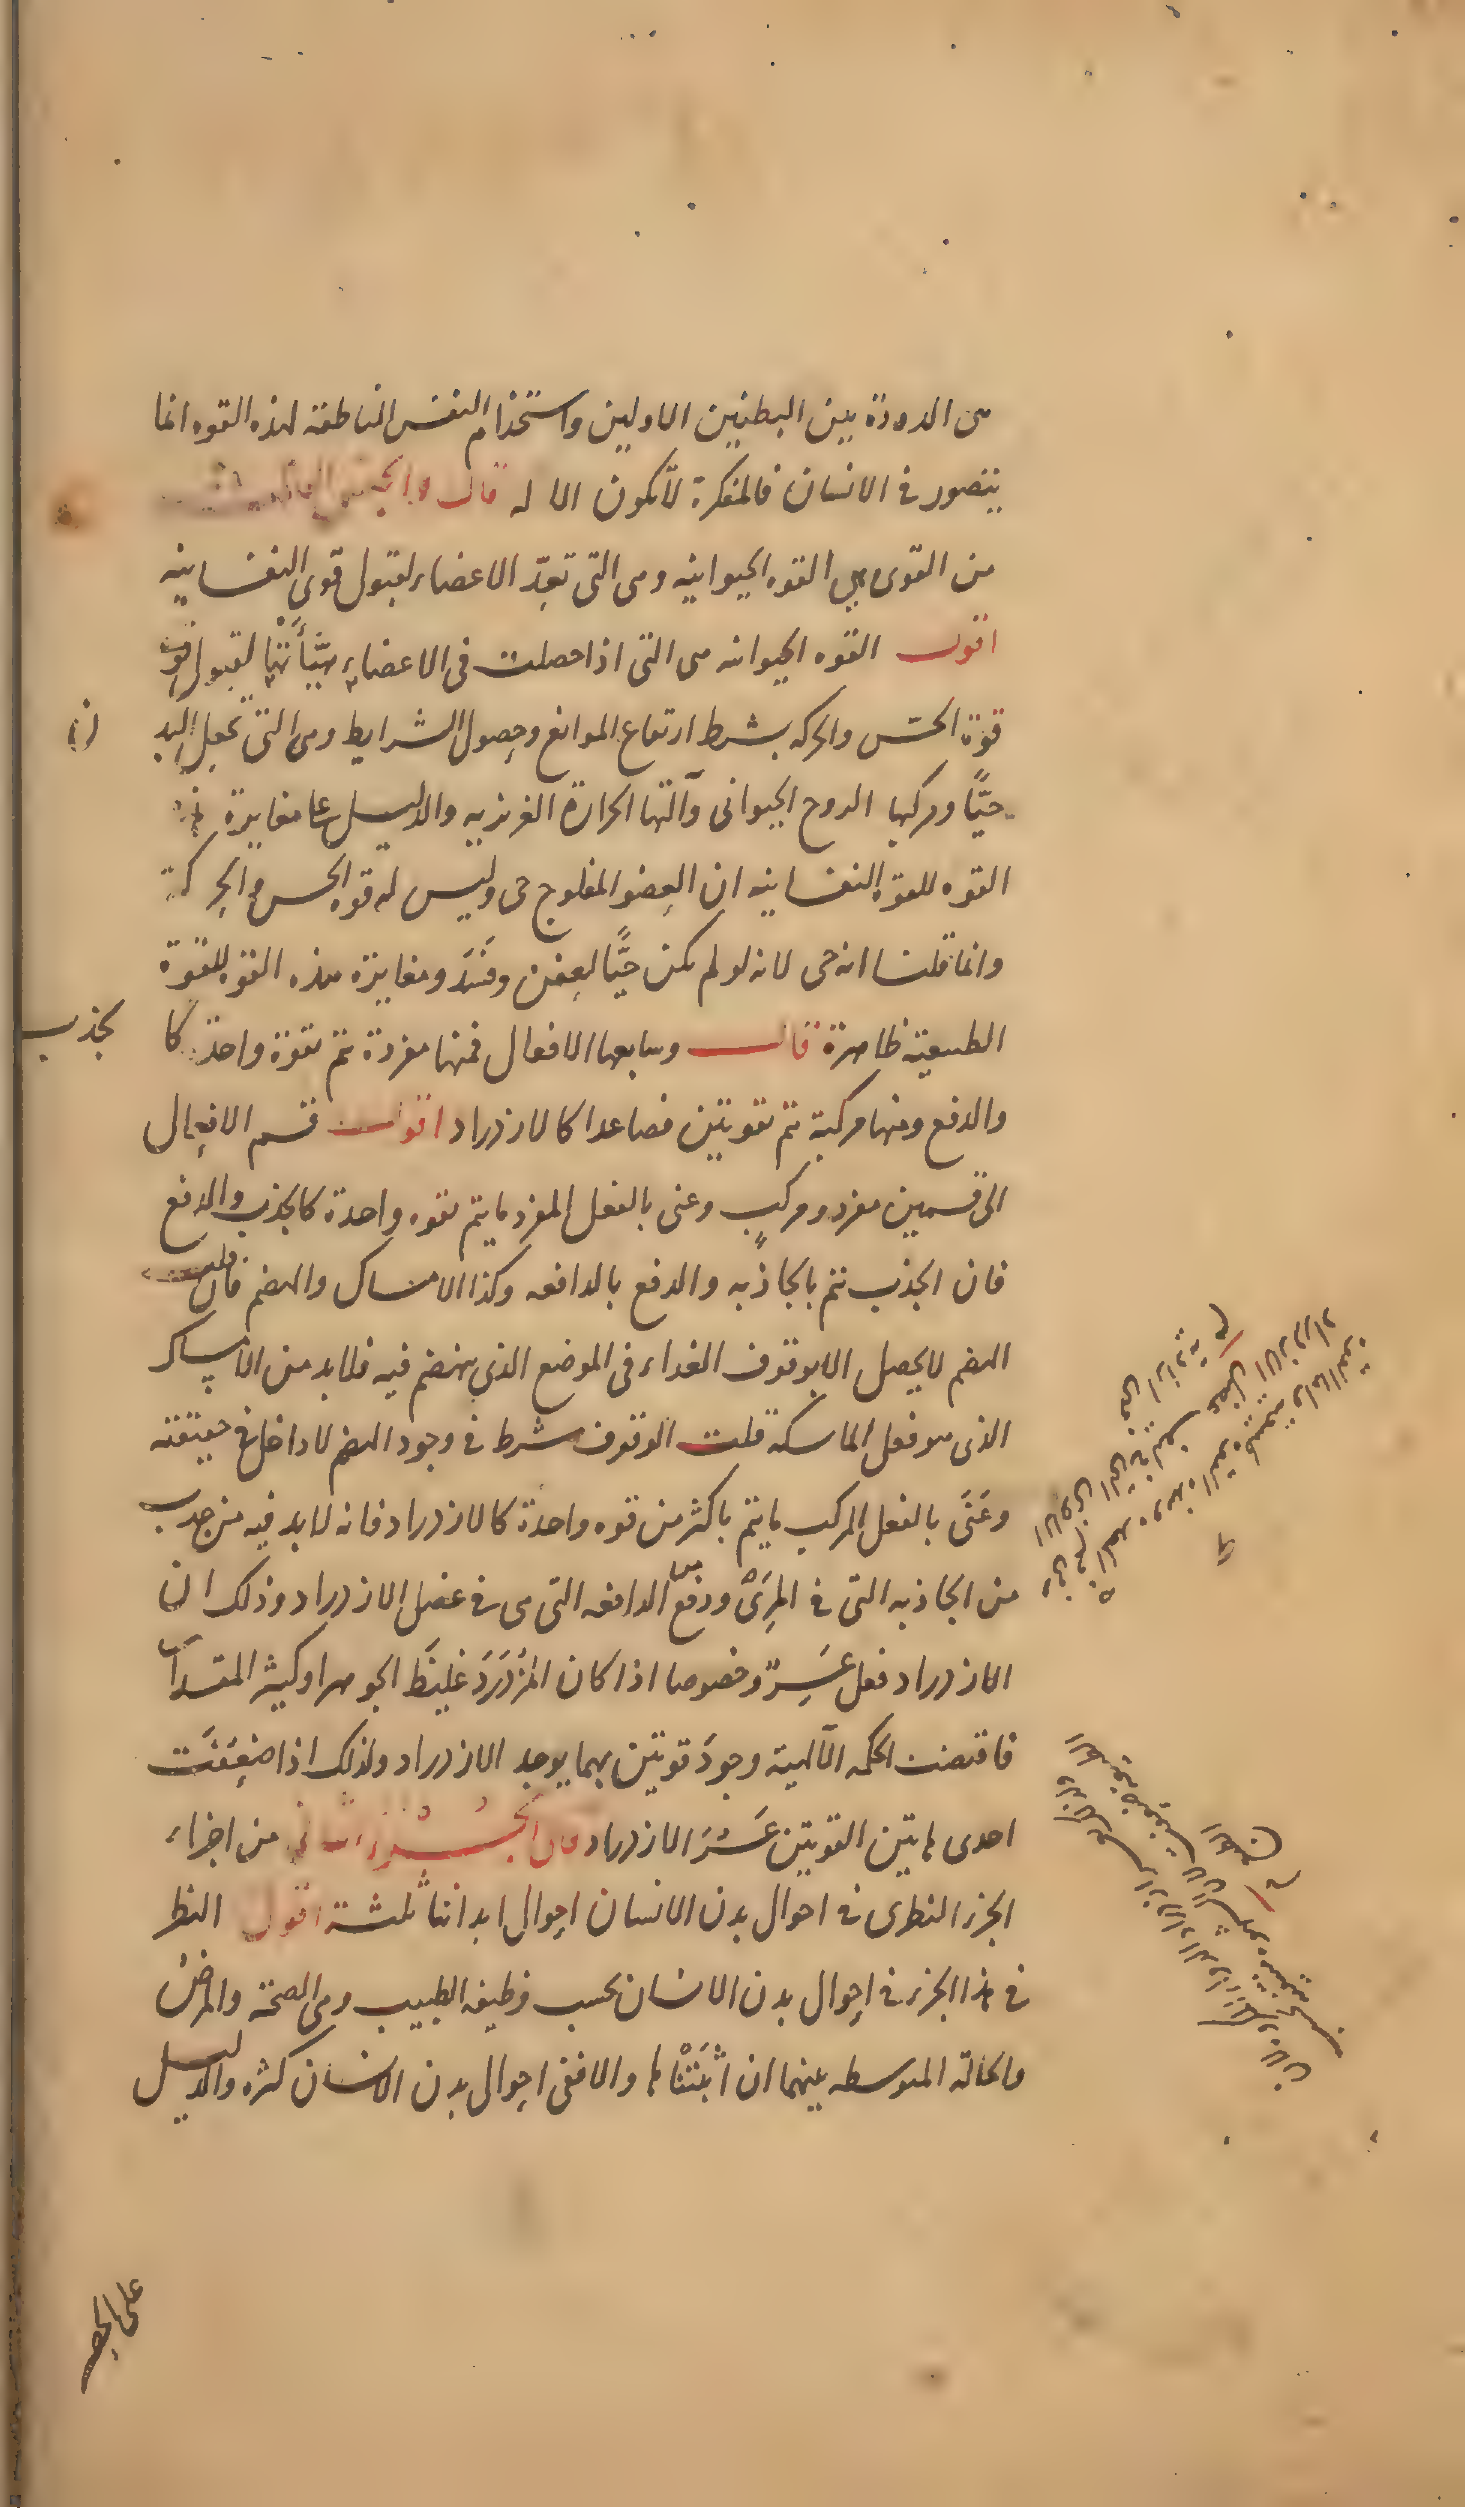 هى الدودة بين البطنين الاولين واستخدام النفس الناطقة لهذه القوه انما
يتصور فى الانسان فالمفكرة لا تكون الا له قال والجنس الثالث
من القوى هى القوه الحيوانيه وهى التى تعدّ الاعضاء لقبول قوى النفسانيه
اقول القوه الحيوانيه هى التى اذا حصلت فى الاعضاء هيّأَتْها لقبول
قوة الحسّ والحركه بشرط ارتفاع الموانع وحصول الشرايط وهى التى تجعل البد
ن
حيًّا ومركبها الروح الحيوانى وآلتها الحرارة الغريزيه والدليل على مغايرة هذه
القوه للقوة النفسانيه ان العضو المفلوج حى وليس له قوه الحس والحركة
وانما قلنا انه حى لانه لو لم يكن حيًّا لعفن وفَسَدَ ومغايرة هذه القوه للقوة
الطبيعيه ظاهرة قال وسابعها الافعال فمنها مفردة تتم بقوة واحدة كا
لجذب
والدفع ومنها مركبة تتم بقوتين فصاعدا كالازدراد اقول قسم الافعال
الى قسمين مفرد ومركب وعنى بالفعل المفرد ما يتم بقوه واحدة كالجذب والدفع
فان الجذب يتم بالجاذبه والدفع بالدافعه وكذا الامساك والهضم فان قلت
الهضم لا يحصل الا بوقوف الغداء فى الموضع الذى ينهضم فيه فلا بد من الامساك
الذى هو فعل الماسكة قلت الوقوف شرط فى وجود الهضم لا داخل فى حقيقته
وعَنَى بالفعل المركب ما يتم باكثر من قوه واحدة كالازدراد فانه لا بد فيه من جذب
من الجاذبه التى فى المرِئ ودفع من الدافعه التى هى فى عضل الازدراد وذلك ان
الازدراد فعل عَسِرٌ وخصوصا اذا كان المُزْدَرَدَ غليظَ الجوهر او كثير المقدار
فاقتضت الحكمه الآلهية وجودَ قوتين بهما يوجد الازدراد ولذلك اذا ضعفَت
احدى هاتين القوتين عَسُرَ الازدراد قال الجُزْء الثانى من اجزاء
الجزء النظرى فى احوال بدن الانسان احوال ابداننا ثلثة اقول النظر
فى هذا الجزء فى احوال بدن الانسان بحسب وظيفه الطبيب وهى الصحة والمرض
والحالة المتوسطه بينهما ان اثبتناها والا ففى احوال بدن الانسان كثره والدليل
على الحصر